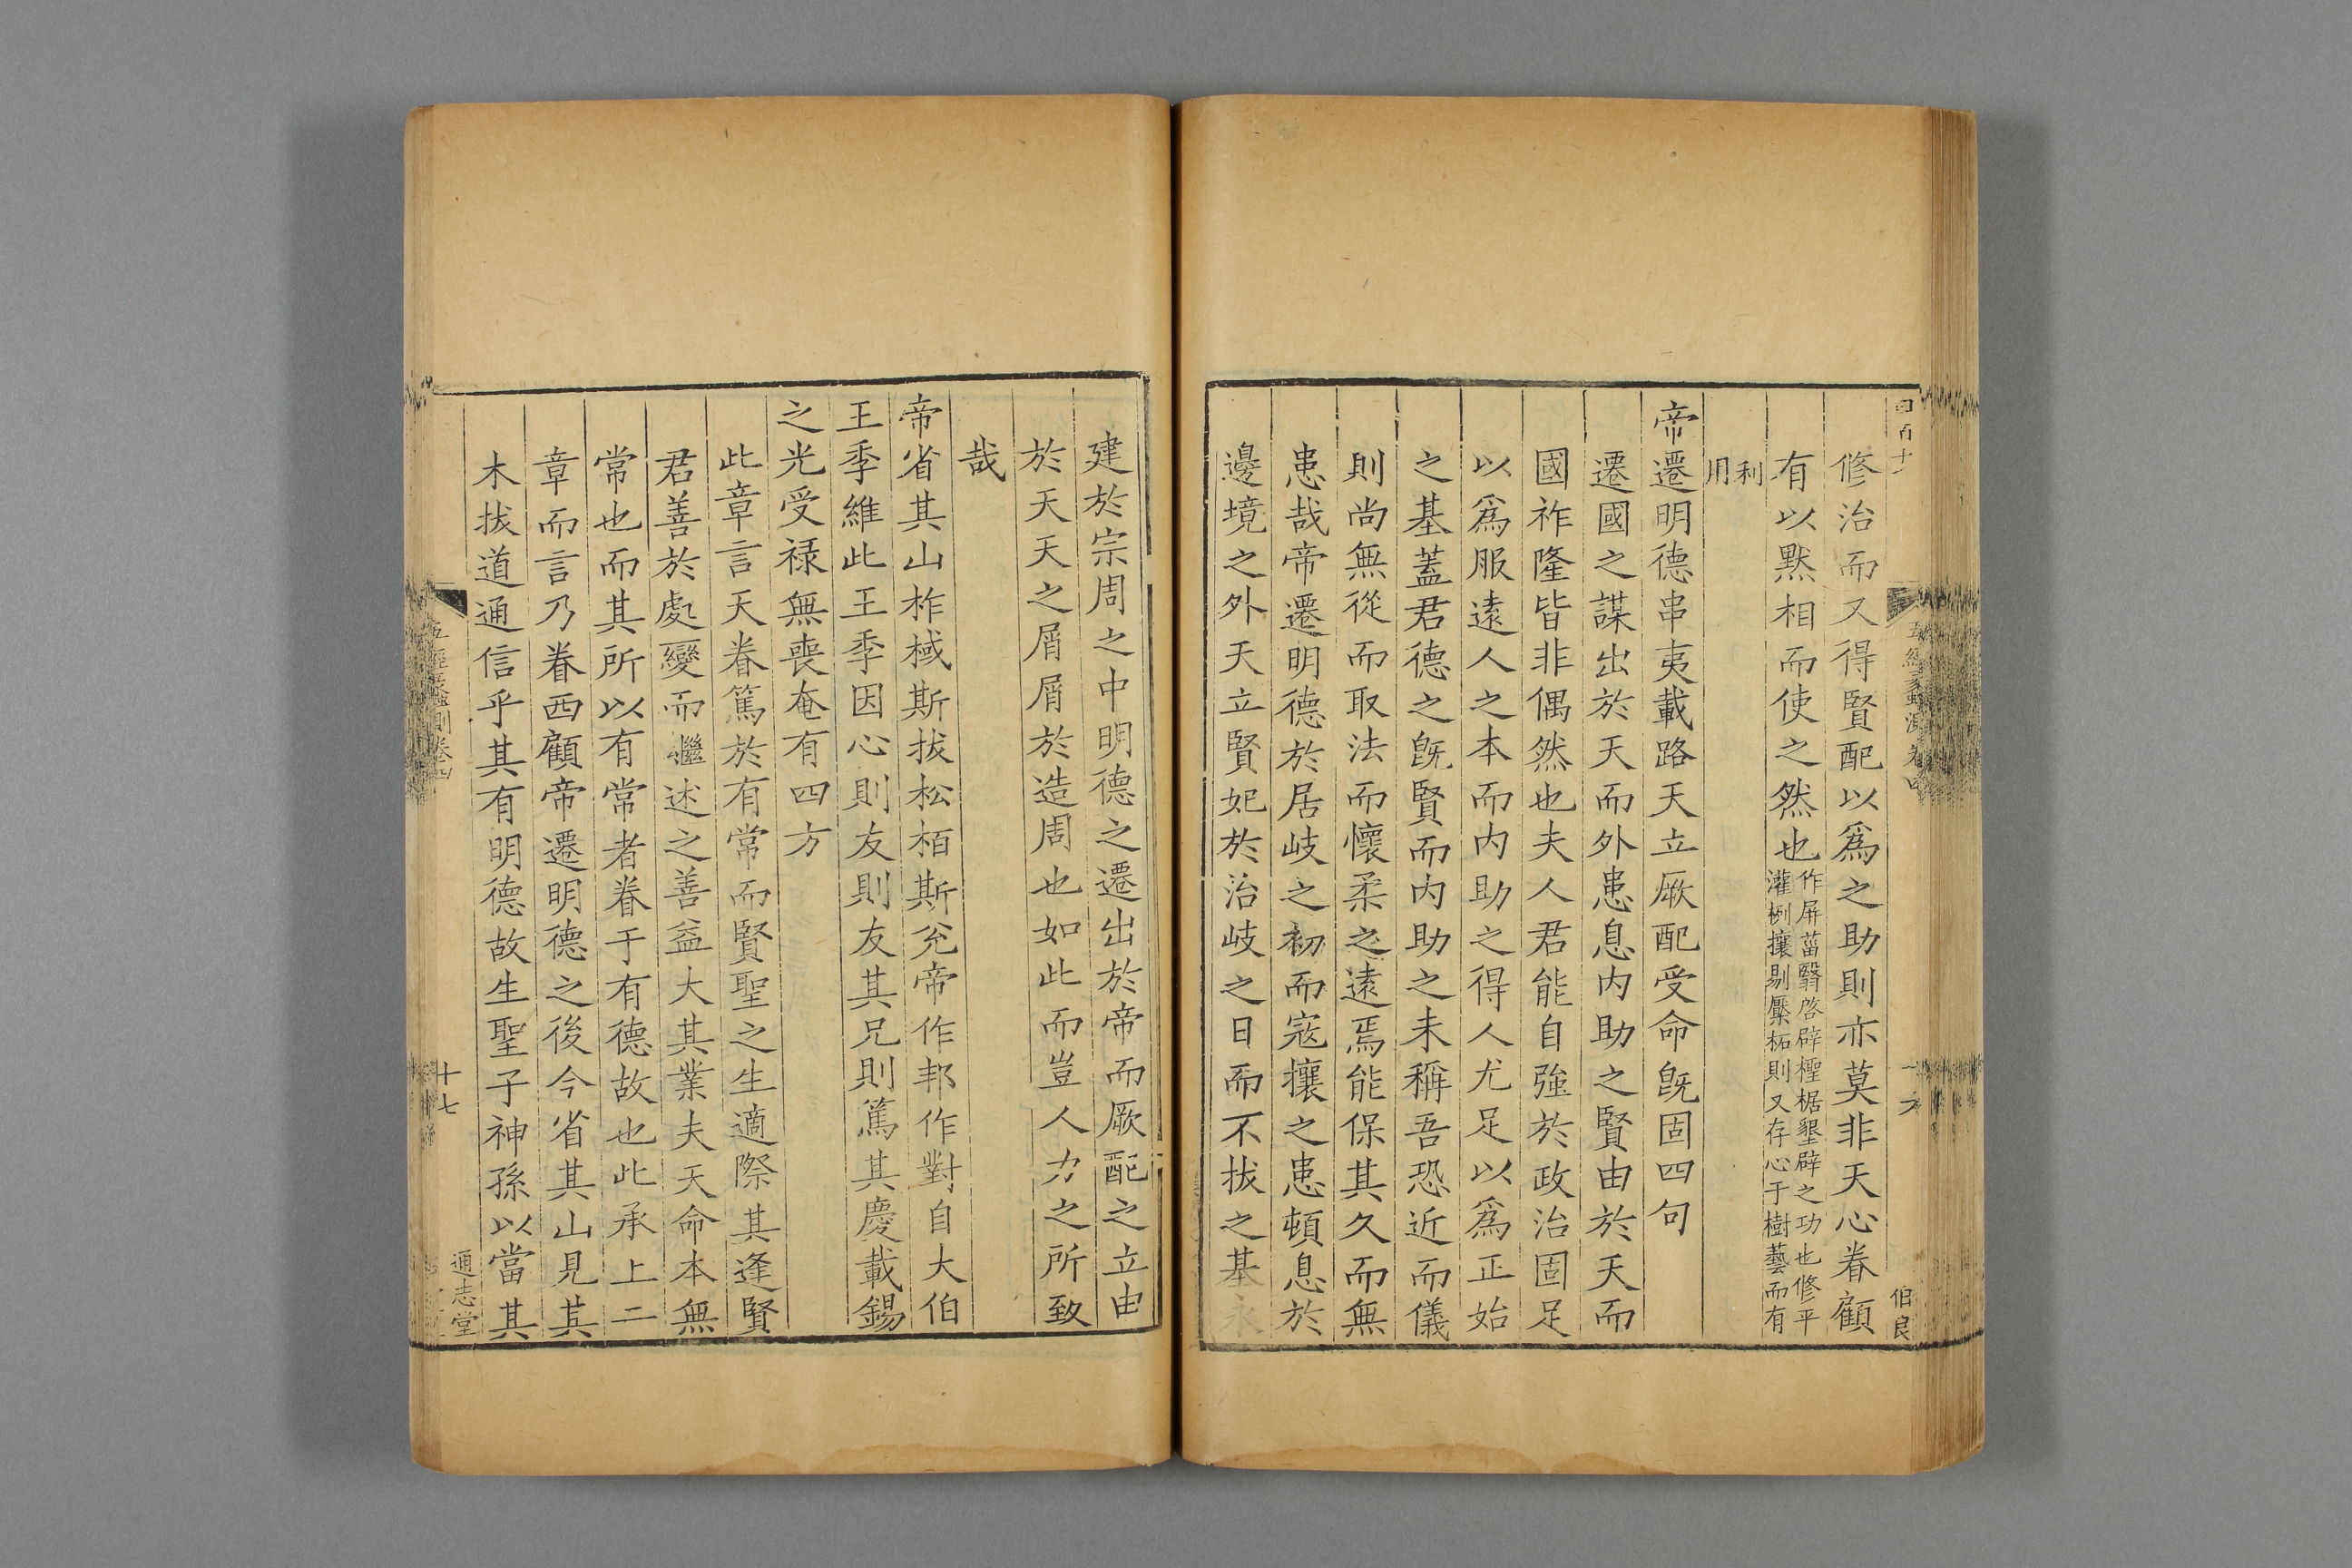 修治而又得賢配以爲之助則亦莫非天心眷顧
有以默相而使之然也作屏菑翳啓辟檉椐墾辟之功也修平
灌栵攘剔檿柘則又存心于樹藝而有
利
用
帝遷明德串夷載路天立厥配受命旣固四句
遷國之謀出於天而外患息内助之賢由於天而
國祚隆皆非偶然也夫人君能自強於政治固足
以爲服遠人之本而内助之得人尤足以爲正始
之基蓋君德之旣賢而内助之未稱吾恐近而儀
則尚無從而取法而懷柔之遠焉能保其久而無
患哉帝遷明德於居岐之初而寇攘之患頓息於
邊境之外天立賢妃於治岐之日而不拔之基永
伯良
建於宗周之中明德之遷出於帝而厥配之立由
於天天之屑屑於造周也如此而豈人力之所致
哉
帝省其山柞棫斯拔松栢斯兊帝作邦作對自大伯
王季維此王季因心則友則友其兄則篤其慶載錫
之光受禄無喪奄有四方
此章言天眷篤於有常而賢聖之生適際其逢賢
君善於處變而繼述之善益大其業夫天命本無
常也而其所以有常者眷于有德故也此承上二
章而言乃眷西顧帝遷明德之後今省其山見其
木拔道通信乎其有明德故生聖子神孫以當其
五經蠡測卷四
十七
通志堂